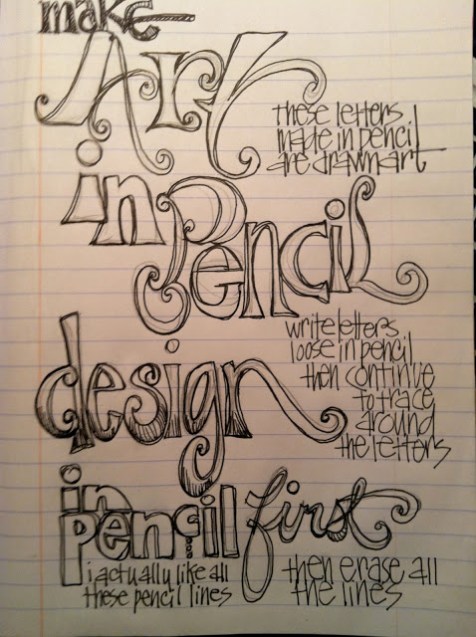 make
Art
these letters
made in pencil
are drawn art
in
Pencil
write letters
loose in pencil
then continue
to trace
around
the letters
design
in
pencil first
i actually like all
these pencil lines
then erase all
the lines